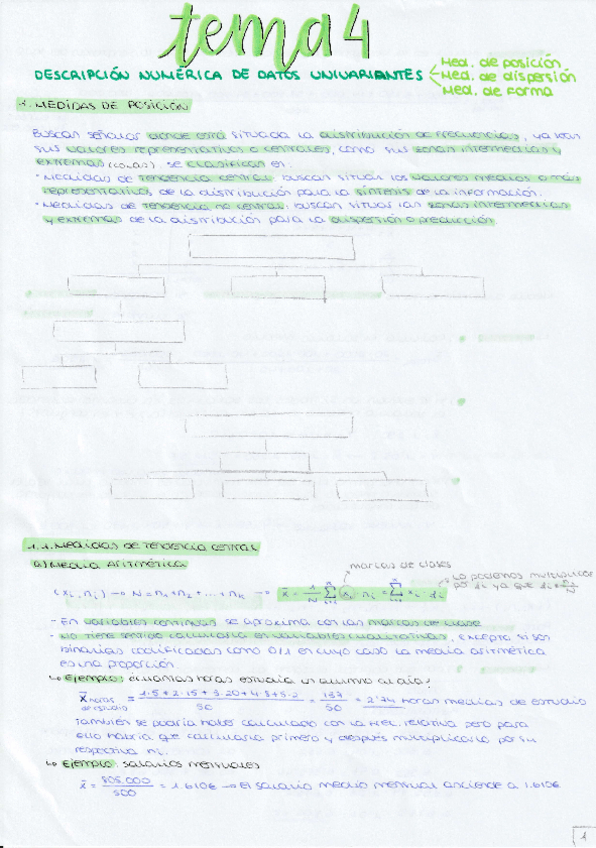 tema 4
DESCRIPCIÓN NUMÉRICA DE DATOS UNIVARIANTES
Med. de posición
Med. de dispersión
Med. de forma
1. MEDIDAS DE POSICIÓN
Buscan señalar donde está situada la distribución de frecuencias, ya sean
sus valores representativos o centrales, como sus zonas intermedias y
extremas (colas). Se clasifican en:
• Medidas de tendencia central: buscan situar los valores medios o más
representativos, de la distribución para la síntesis de la información.
• Medidas de tendencia no central: buscan situar las zonas intermedias
y extremas de la distribución para la dispersión o predicción.
1.1. Medidas de tendencia central
a) Media Aritmética
marcas de clases
(xi, ni) → N = n1 + n2 + ... + nk → x̄ = 1/N Σ xi ni = Σ xi · fi
lo podemos multiplicar
por fi ya que fi = ni/N
- En variables continuas se aproxima con las marcas de clase
- No tiene sentido calcularla en variables cualitativas, excepto si son
binarias codificadas como 0/1 en cuyo caso la media aritmética
es una proporción
↳ Ejemplo: cuantas horas estudia un alumno al día?
x̄ horas de estudio = = 137/50 = 2'74 horas medias de estudio
También se podría haber calculado con la frec. relativa pero para
ello habría que calcularla primero y después multiplicarlo por su
respectiva ni.
↳ Ejemplo: salarios mensuales
x̄ = 805.000/500 = 1.610€ → El salario medio mensual asciende a 1.610€
1